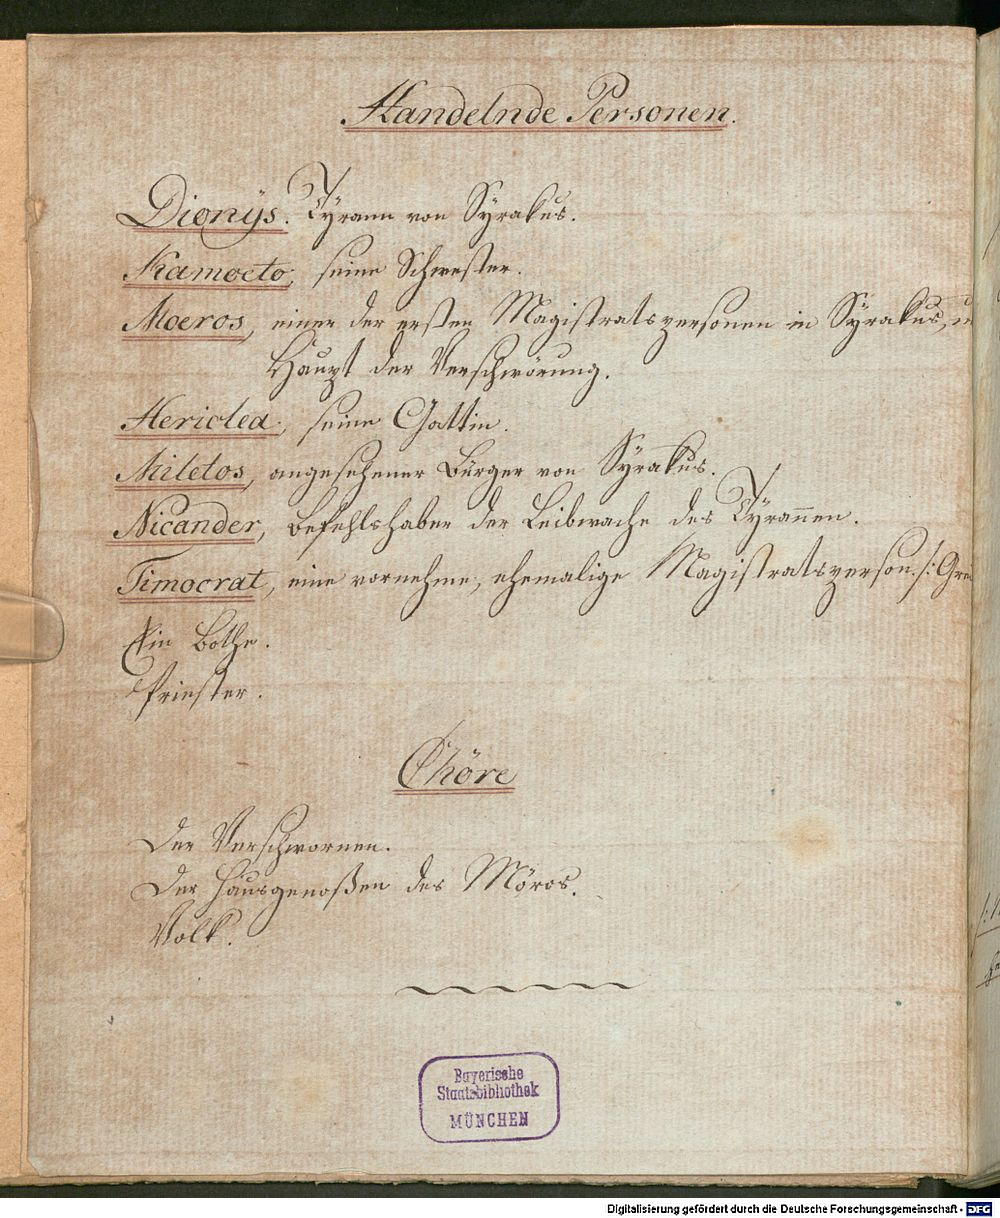 Handelnde Personen.
Dionÿs. Tÿrann von Sÿrakus.
Kamoeto, seine Schwester.
Moeros, einer der ersten Magistratspersonen in Sÿrakus, u
Haupt der Verschwörung.
Hericlea, seine Gattin.
Miletos, angesehener Bürger von Sÿrakus.
Nicander, Befehlshaber der Leibwache des Tÿrannen.
Timocrat, eine vornehme, ehemalige Magistratsperson. /: Grei
Ein Bothe.
Priester.
Chöre
Der Verschwornen.
Der Hausgenoßen des Möros.
Volk.
Bayerische
Staatsbibliothek
MÜNCHEN
Digitalisierung gefördert durch die Deutsche Forschungsgemeinschaft - DFG